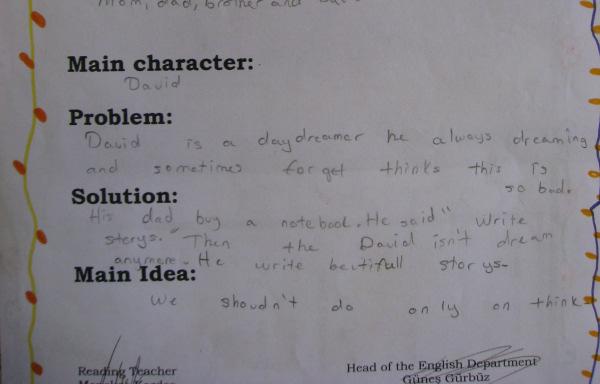 mom, dad, brother and
Main character:
David
Problem:
David is a daydreamer he always dreaming
and sometimes forget thinks this is
so bad.
Solution:
His dad buy a notebook. He said " Write
storys." Then the David isn't dream
anymore. He write beutifull storys.
Main Idea:
We shoudn't do only on think
Reading Teacher
Head of the English Department
Güneş Gürbüz